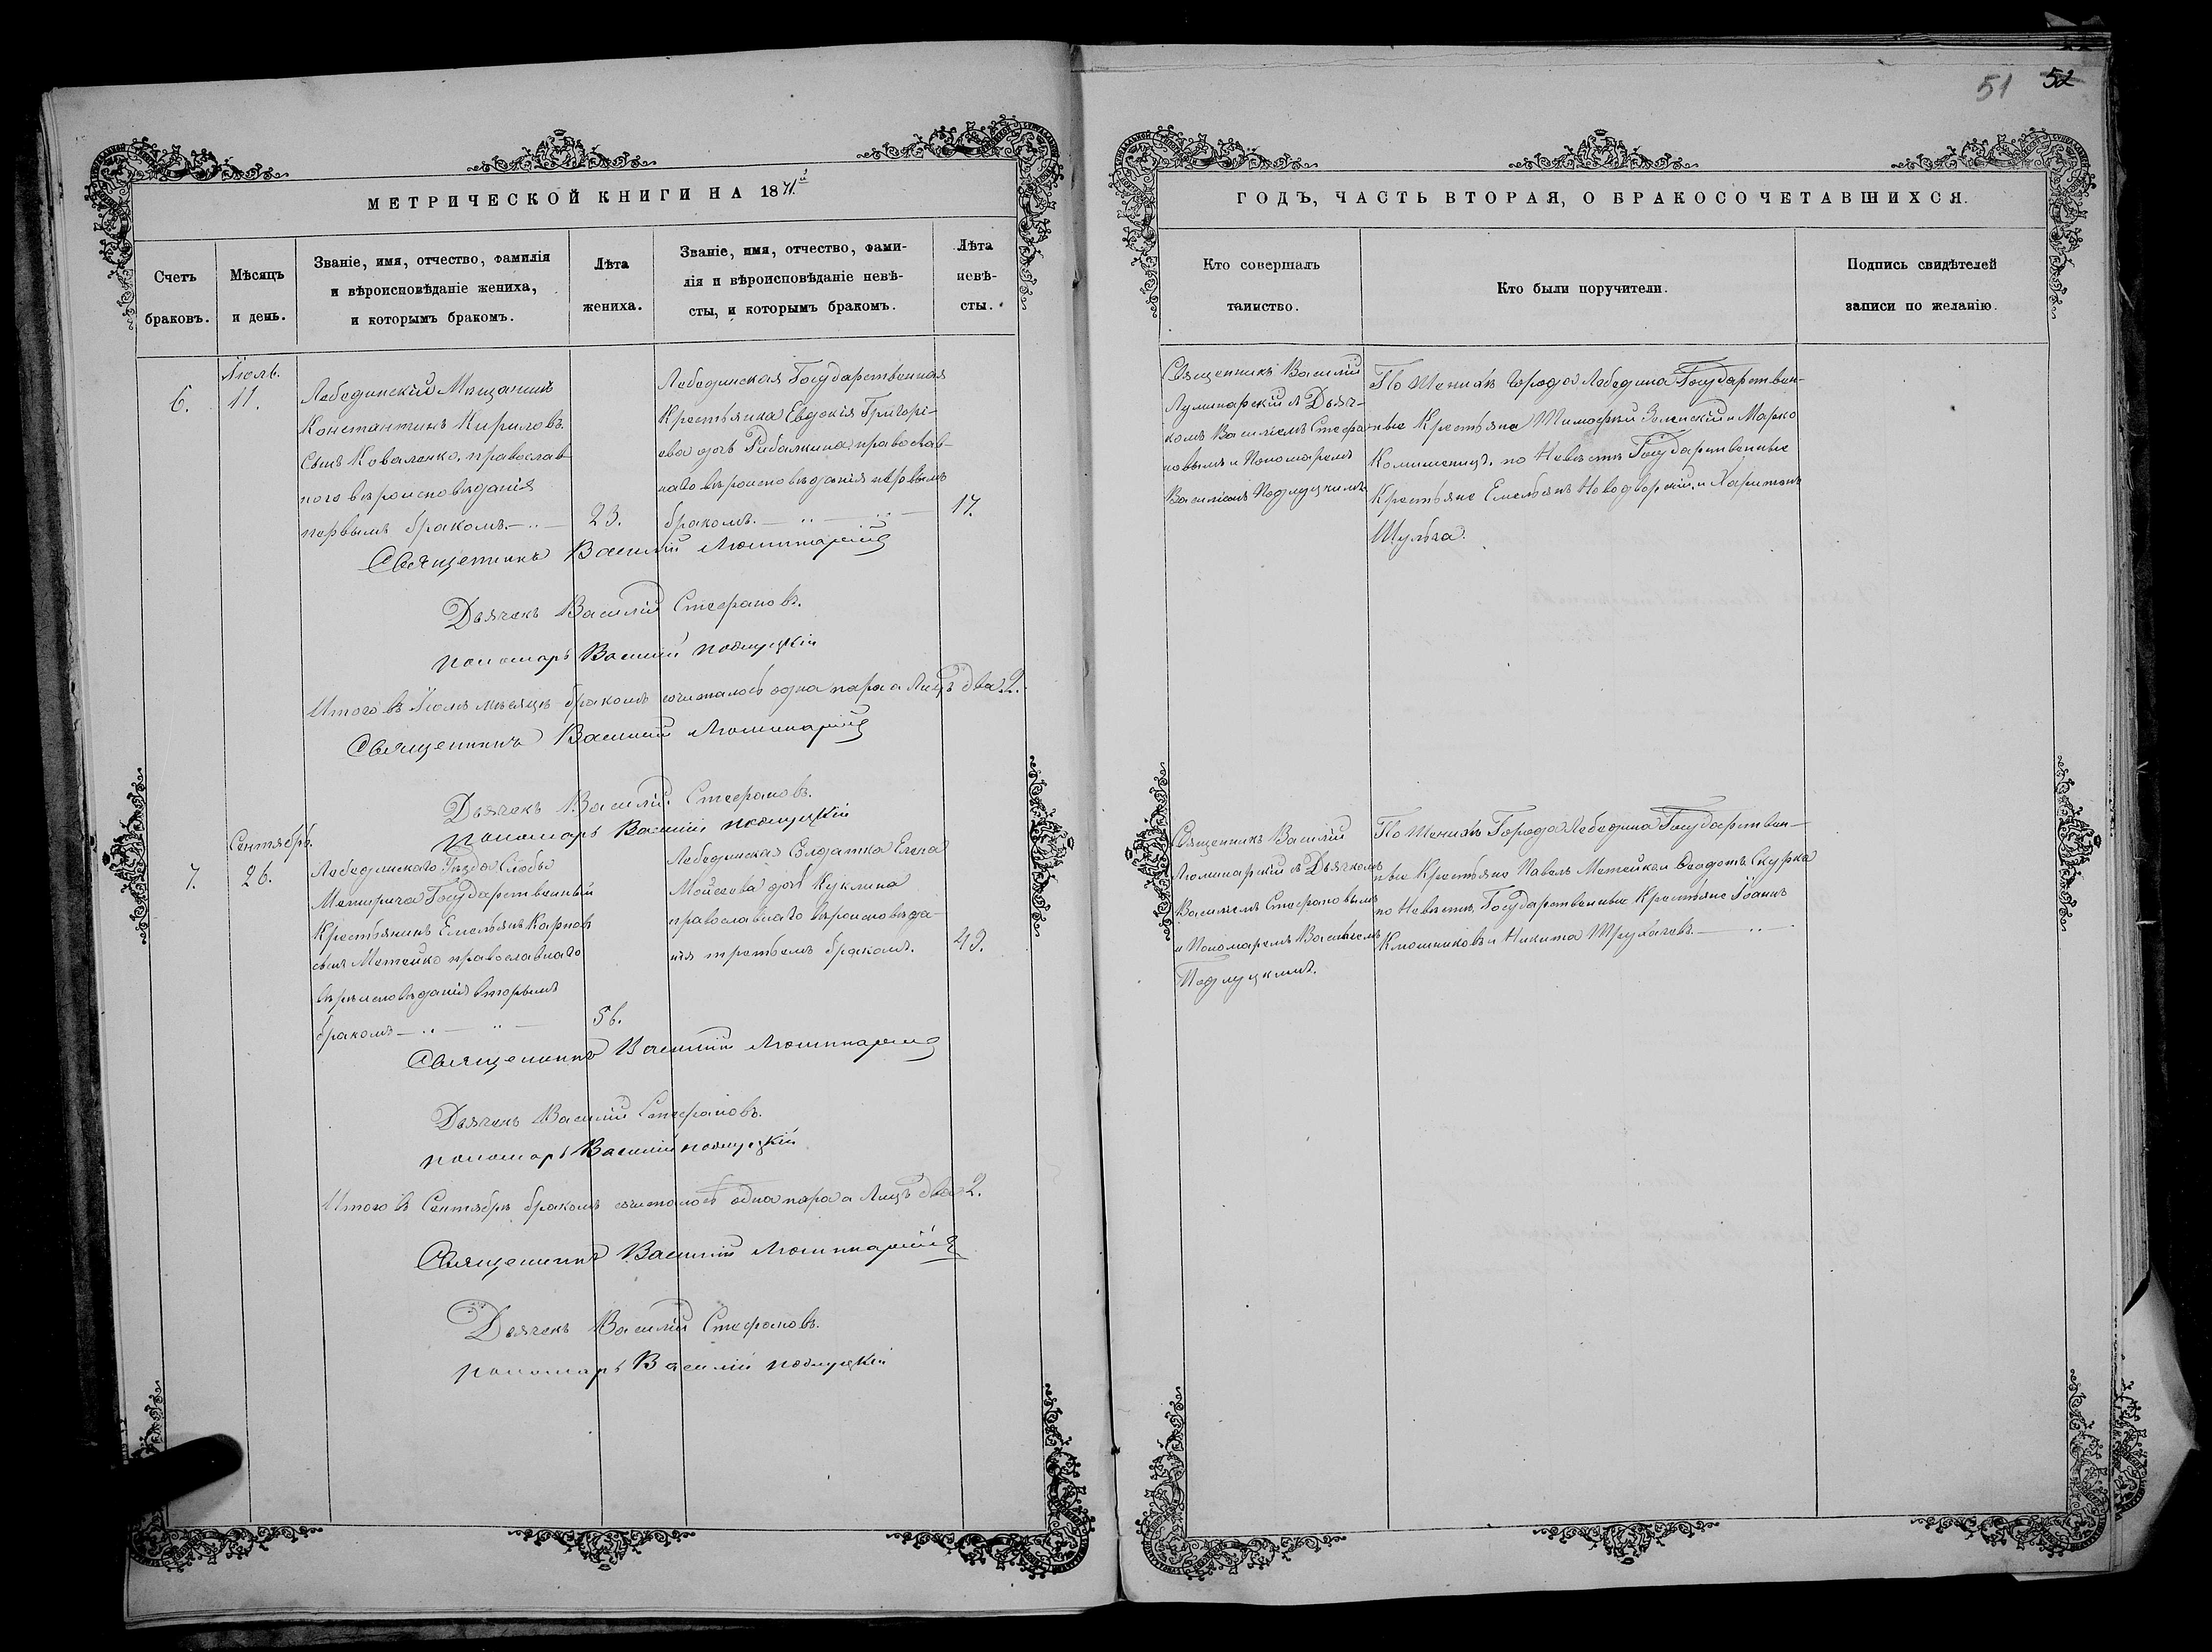 51 52
МЕТРИЧЕСКОЙ КНИГИ НА 1871й
Счетъ браковъ.
Мѣсяцъ и день.
Званіе, имя, отчество, фамилія
и вѣроисповѣданіе жениха,
и которымъ бракомъ.
Лѣта жениха.
Званіе, имя, отчество, фами-
лія и вѣроисповѣданіе невѣ-
сты, и которымъ бракомъ.
Лѣта невѣ-
сты.
6.
Іюль.
11.
Лебединскій Мещанинъ
Константинъ Кириловъ
сынъ Коваленко, православ-
ного вѣроисповѣданія
первымъ бракомъ.
23.
Лебединская Государственная
Крестьянка Евдокія Григорі-
ева дочь Рибалкина православ-
наго вѣроисповѣданія первымъ
бракомъ.
17.
Священникъ Василій
Дьячекъ Василій Стефановъ.
пономарь Василій Подлуцкій
Итого въ Іюлѣ мѣсяцѣ бракомъ сочеталось одна пара а лицъ два 2.
Священникъ Василій
Дьячекъ Василій Стефановъ.
пономарь Василій Подлуцкій
7.
Сентябрь.
26.
Лебединскаго Уѣзда Слобы
Межирича Государственный
Крестьянинъ Емельянъ Карповъ
сынъ Метейко православнаго
вѣроисповѣданія вторымъ
бракомъ
56.
Лебединская Солдатка Елена
Мойсеева дочь Куклина
православнаго вѣроисповѣда-
нія третьемъ бракомъ.
49.
Священникъ Василій
Дьячекъ Василій Стефановъ.
пономарь Василій Подлуцкій
Итого въ Сентябрѣ бракомъ сочеталось одна пара а лицъ два 2.
Священникъ Василій
Дьячекъ Василій Стефановъ.
пономарь Василій Подлуцкій
ГОДЪ, ЧАСТЬ ВТОРАЯ, О БРАКОСОЧЕТАВШИХСЯ.
Кто совершалъ
таинство.
Кто были поручители.
Подпись свидѣтелей
записи по желанію.
Священникъ Василій
съ Дьяч-
комъ Василіемъ Стефа-
новымъ и Пономаремъ
Василіемъ Подлуцкимъ
По Женихѣ города Лебедина Государствен-
ные Крестьяне Тимофей и Марко
по Невѣстѣ Государственные
Крестьяне Емельянъ Новодворскій и Харитонъ
Шульга.
Священникъ Василій
съ Дьячкомъ
Василіемъ Стефановымъ
и Пономаремъ Василіемъ
Подлуцкимъ.
По Женихѣ Города Лебедина Государствен-
ные Крестьяне Павелъ Метейко и Феодотъ Скурка
по Невѣстѣ Государственные Крестьяне Іоаннъ
Клюшниковъ и Никита Трухачевъ.